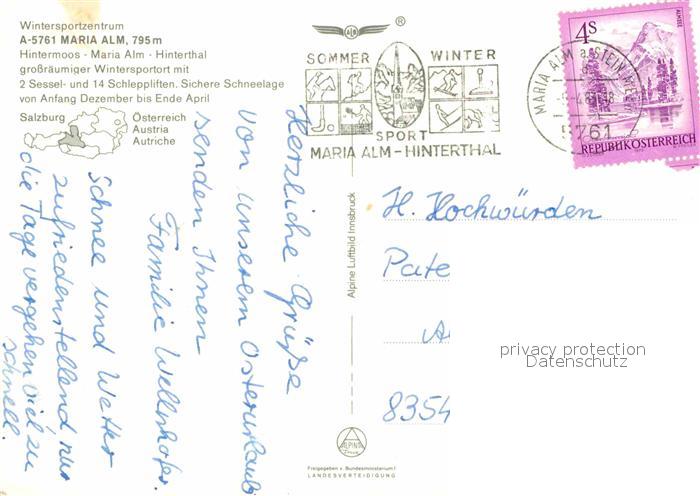 Wintersportzentrum
A-5761 MARIA ALM, 795m
Hintermoos · Maria Alm · Hinterthal
großräumiger Wintersportort mit
2 Sessel- und 14 Schleppliften. Sichere Schneelage
von Anfang Dezember bis Ende April
Salzburg
Österreich
Austria
Autriche
SOMMER WINTER
SPORT
MARIA ALM-HINTERTHAL
MARIA ALM a. STEIN
5761
4S
ALMSEE
REPUBLIK ÖSTERREICH
Herzliche Grüße
von unserem Osterurlaub
senden Ihnen
Familie Wellnhofer.
Schnee und Wetter
zufriedenstellend nur
die Tage vergehen viel zu
schnell.
Alpine Luftbild Innsbruck
H. Hochwürden
Pate
A
8354
privacy protection
Datenschutz
ALPINE
Freigegeben v. Bundesministerium f.
LANDESVERTEIDIGUNG